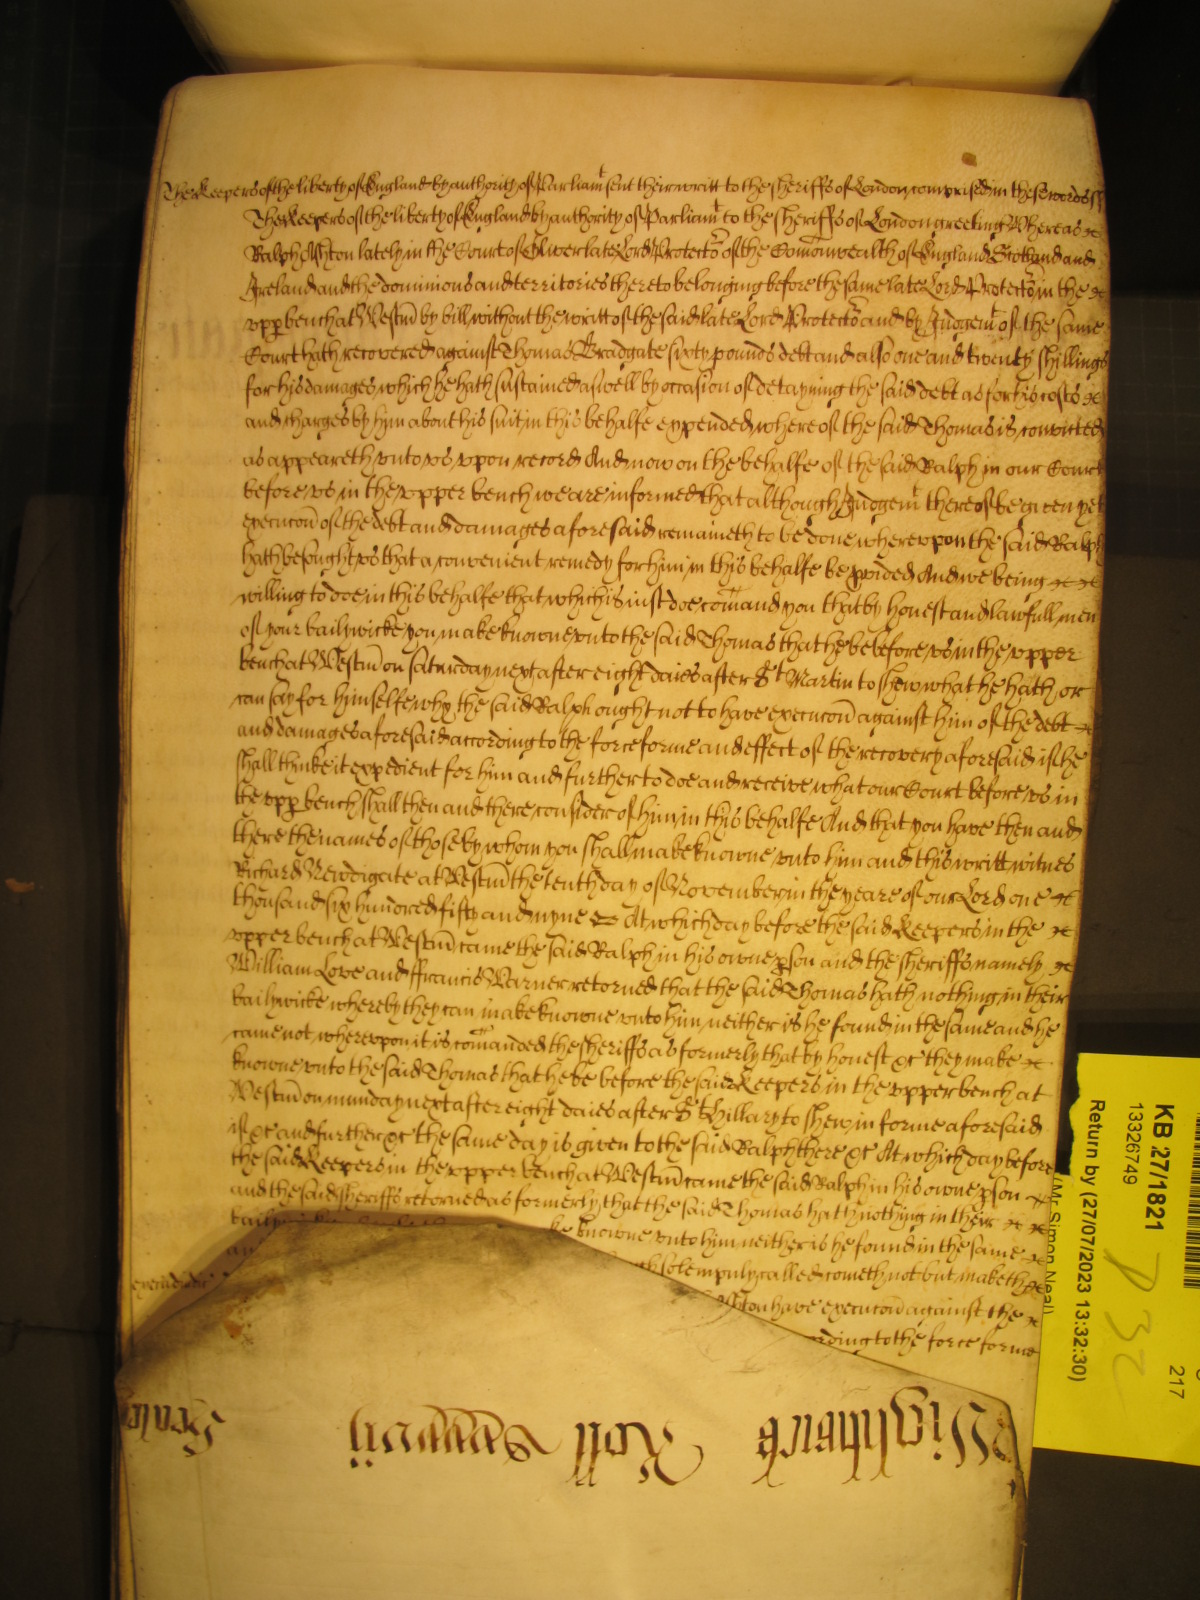 The Keepers of the liberty of England by authority of Parliamt sent their writt to the sheriffs of London comprised in these words ss
The Keepers of the liberty of England by authority of Parliamt to the sheriffs of London greeting Whereas
Ralph Ashton lately in the Court of Oliver late Lord Protector of the Comonwealth of England Scotland and
Ireland and the dominions and territories thereto belonging before the same late Lord Protector in the
upp bench at Westm by bill without the writt of the said late Lord Protector and by Judgemt of the same
Court hath recovered against Thomas Bradgate sixty pounds debt and also one and twenty shillings
for his damages which he hath sustained aswell by occasion of detayning the said debt as for his costs
and charges by him about his suit in this behalfe expended whereof the said Thomas is convicted
as appeareth unto us upon record And now on the behalfe of the said Ralph in our Court
before us in the upper bench we are informed that although Judgemt thereof be given yet
execucon of the debt and damages aforesaid remaineth to be done whereupon the said Ralph
hath besought us that a convenient remedy for him in this behalfe be pvided And we being
willing to doe in this behalfe that which is iust doe comand you that by honest and lawfull men
of your bailywicke you make knowne unto the said Thomas that he be before us in the upper
bench at Westm on saturday next after eight daies after St Martin to shew what he hath or
can say for himselfe why the said Ralph ought not to have execucon against him of the debt
and damages aforesaid according to the force forme and effect of the recovery aforesaid if he
shall thinke it expedient for him and further to doe and receive what our Court before us in
the upp bench shall then and there consider of him in this behalfe And that you have then and
there the names of those by whom you shall make knowne unto him and this writt witnes
Richard Newdigate at Westm the tenth day of November in the yeare of our Lord one
thousand six hundred fifty and nyne At which day before the said Keepers in the
upper bench at Westm came the said Ralph in his owne pson and the sheriffs namely
William Love and ffrancis Warner retorned that the said Thomas hath nothing in their
bailywicke whereby they can make knowne unto him neither is he found in the same and he
came not whereupon it is comanded the sheriffs as formerly that by honest &c they make
knowne unto the said Thomas that he be before the said Keepers in the upper bench at
Westm on munday next after eight daies after St Hillary to shew in forme aforesaid
if &c and further &c the same day is given to the said Ralph there &c At which day before
the said Keepers in the upper bench at Westm came the said Ralph in his owne pson
and the said sheriffs retorned as formerly that the said Thomas hath nothing in their
baily ke knowne unto him neither is he found in the same
solempnly called cometh not but maketh
hton have execucon against the
rding to the force forme
Roll
KB 27/1821
13326749
Return by (27/07/2023 13:32:30)
(Mr Simon Neal)
217
P 32